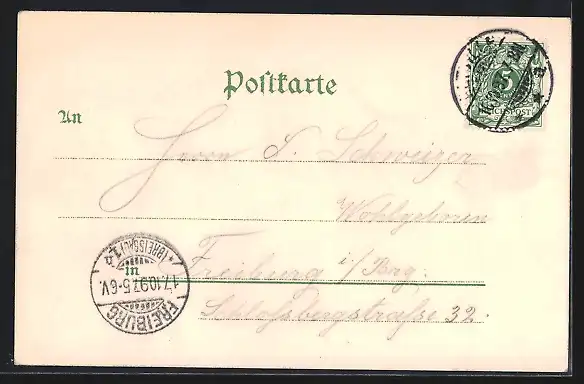 Postkarte
5
REICHSPOST
An
Herrn S. Schweizer
Wohlgeboren
in
Freiburg i/Brg.
Schloßbergstraße 32.
FREIBURG
17.10.97.5-6V.
* (BREISGAU) 1 a